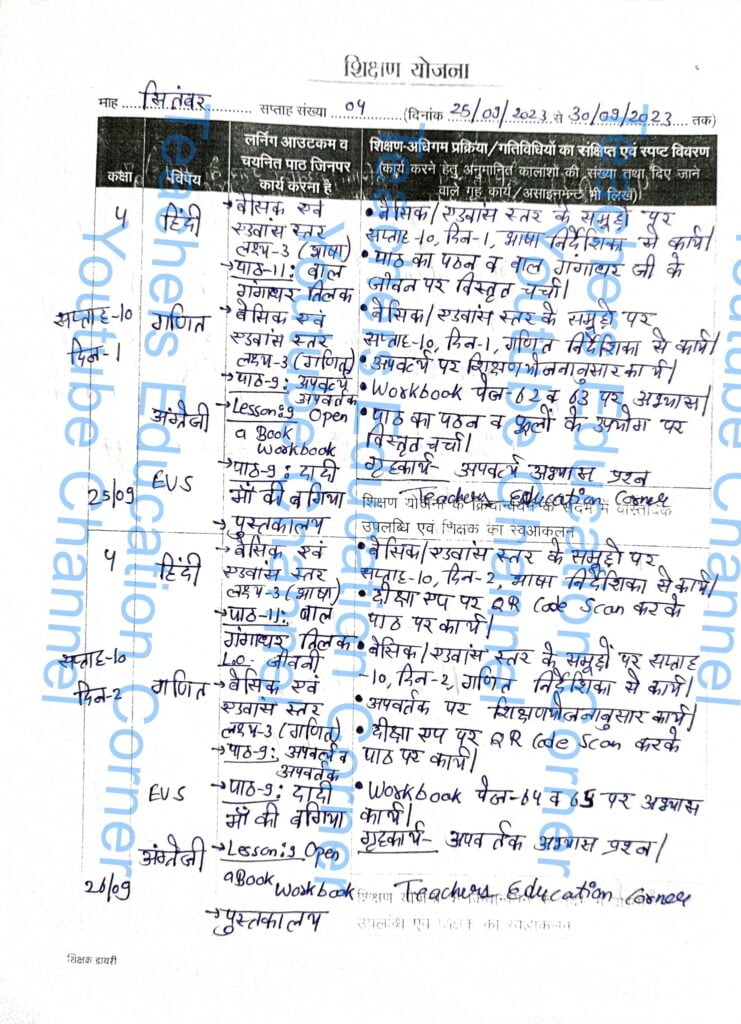 शिक्षण योजना
माह ... सितंबर ... सप्ताह संख्या .. 04 .. (दिनांक 25/09/2023 से 30/09/2023 ... तक)
कक्षा
विषय
लर्निंग आउटकम व
चयनित पाठ जिनपर
कार्य करना है
शिक्षण-अधिगम प्रक्रिया/गतिविधियों का संक्षिप्त एवं स्पष्ट विवरण
(कार्य करने हेतु अनुमानित कालांशो की संख्या तथा दिए जाने
वाले गृह कार्य/असाइनमेन्ट भी लिखें)
4
सप्ताह-10
दिन-1
25/09
हिंदी
गणित
अंग्रेजी
EVS
→ बेसिक एवं
एडवांस स्तर
लक्ष्य-3 (भाषा)
→ पाठ-11: बाल
गंगाधर तिलक
→ बेसिक एवं
एडवांस स्तर
लक्ष्य-3 (गणित)
→ पाठ-9: अपवर्त्य
अपवर्तक
→ Lesson:9 Open
a Book
Workbook
→ पाठ-9: दादी
माँ की बगिया
→ पुस्तकालय
• बेसिक/एडवांस स्तर के समूहों पर
सप्ताह-10, दिन-1, भाषा निर्देशिका से कार्य।
• पाठ का पठन व बाल गंगाधर जी के
जीवन पर विस्तृत चर्चा।
• बेसिक/एडवांस स्तर के समूहों पर
सप्ताह-10, दिन-1, गणित निर्देशिका से कार्य।
• अपवर्त्य पर शिक्षणयोजनानुसार कार्य।
• Workbook पेज-62 व 63 पर अभ्यास।
• पाठ का पठन व फूलों के उपयोग पर
विस्तृत चर्चा।
गृहकार्य- अपवर्त्य अभ्यास प्रश्न
Teachers Education Corner
शिक्षण योजना के क्रियान्वयन के संदर्भ में वास्तविक
उपलब्धि एवं शिक्षक का स्वआकलन
4
सप्ताह-10
दिन-2
26/09
हिंदी
गणित
EVS
अंग्रेजी
→ बेसिक एवं
एडवांस स्तर
लक्ष्य-3 (भाषा)
→ पाठ-11: बाल
गंगाधर तिलक
L.O- जीवनी
→ बेसिक एवं
एडवांस स्तर
लक्ष्य-3 (गणित)
→ पाठ-9: अपवर्त्य व
अपवर्तक
→ पाठ-9: दादी
माँ की बगिया
→ Lesson:9 Open
a Book Workbook
→ पुस्तकालय
• बेसिक/एडवांस स्तर के समूहों पर
सप्ताह-10, दिन-2, भाषा निर्देशिका से कार्य।
• दीक्षा एप पर QR Code Scan करके
पाठ पर कार्य।
• बेसिक/एडवांस स्तर के समूहों पर सप्ताह
-10, दिन-2, गणित निर्देशिका से कार्य।
• अपवर्तक पर शिक्षणयोजनानुसार कार्य।
• दीक्षा एप पर QR Code Scan करके
पाठ पर कार्य।
• Workbook पेज-64 व 65 पर अभ्यास
कार्य।
गृहकार्य- अपवर्तक अभ्यास प्रश्न।
Teachers Education Corner
उपलब्धि एवं शिक्षक का स्वआकलन
शिक्षक डायरी
Teachers Education Corner
Youtube Channel
Teachers Education Corner
Youtube Channel
Teachers Education Corner
Youtube Channel